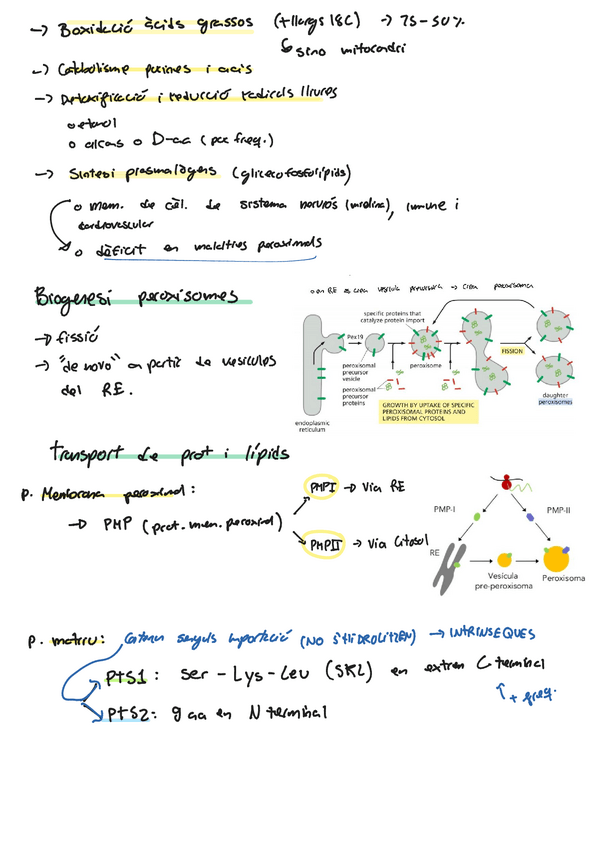 → βoxidació àcids grassos (+llargs 18C) → 25-50%
↳ sino mitocondri
→ Catabolisme purines i acis
→ Detoxificació i reducció radicals lliures
o etanol
o alcans o D-aa (poc freq.)
→ Síntesi plasmalògens (glicerofosfolípids)
o mem. de cèl. de sistema nerviós (mielina), immune i
cardiovascular
o dèficit en malalties peroxisomals
Biogenesi peroxisomes
o en RE es crea vesícula precursora → crea peroxisoma
→ fissió
→ "de novo" a partir de vesícules
del RE.
specific proteins that
catalyze protein import
Pex19
peroxisomal
precursor
vesicle
peroxisome
FISSION
peroxisomal
precursor
proteins
GROWTH BY UPTAKE OF SPECIFIC
PEROXISOMAL PROTEINS AND
LIPIDS FROM CYTOSOL
daughter
peroxisomes
endoplasmic
reticulum
Transport de prot i lípids
P. Membrana peroxisomal:
→ PMP (prot. mem. peroxisomal)
PMPI → Via RE
PMPII → Via Citosol
PMP-I
PMP-II
RE
Vesícula
pre-peroxisoma
Peroxisoma
P. matriu: Contenen senyals importació (NO S'HIDROLITZEN) → INTRINSEQUES
PTS1: Ser-Lys-Leu (SKL) en extrem C-terminal
↑ + freq.
PTS2: 9 aa en N terminal